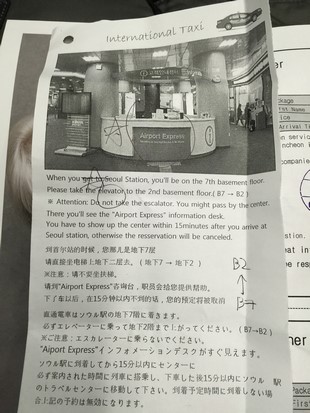 International Taxi
Airport Express
When you get to Seoul Station, you'll be on the 7th basement floor.
Please take the elevator to the 2nd basement floor.( B7 → B2)
※ Attention: Do not take the escalator. You might pass by the center.
There you'll see the "Airport Express" information desk.
You have to show up the center within 15minutes after you arrive at
Seoul station, otherwise the reservation will be canceled.
到首尔站的时候，您那儿是地下7层
请直接坐电梯上地下二层去。（地下7 → 地下2 ）
※注意：请不要坐扶梯。
请到"Airport Express"咨询台，职员会给您提供帮助。
下了车以后，在15分钟以内不到的话，您的预定将被取消
B2
B7
直通電車はソウル駅の地下7階に着きます。
必ずエレベーターに乗って地下2階まで上がってください。（B7→B2）
※ご注意：エスカレーターに乗らないでください。
"Aiport Express"インフォメーションデスクがすぐ見えます。
ソウル駅に到着してから15分以内にセンターに
必ず案内された時間に列車に搭乗し、下車した後15分以内にソウル 駅
のトラベルセンターに移動して下さい。到着予定時間に到着しない場
合上記の予約は無効になります。